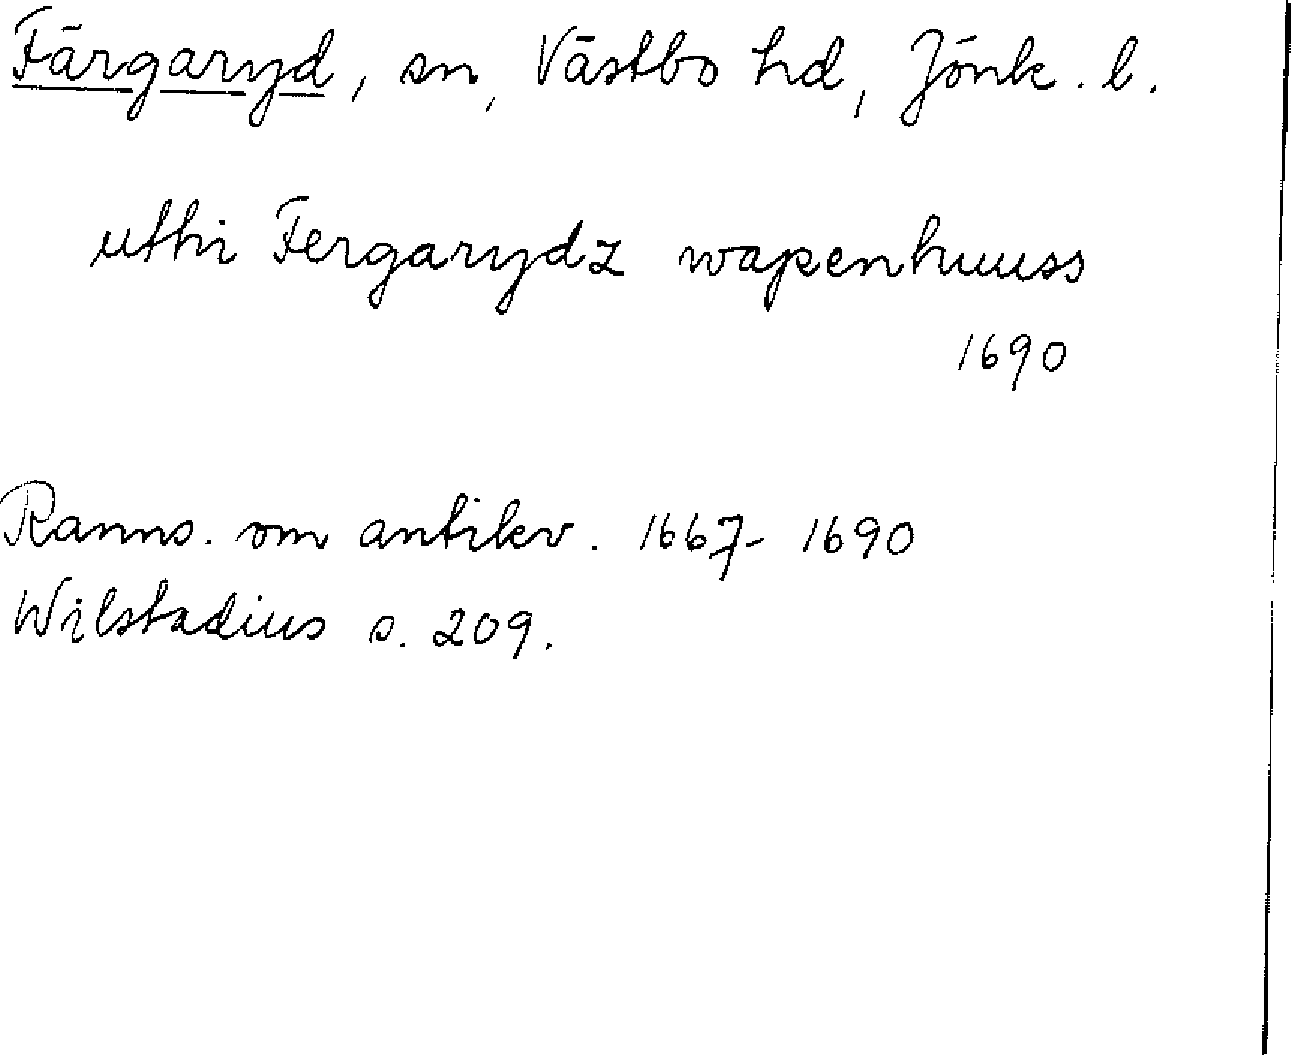 Färgaryd, sn, Västbo hd, Jönk. l.
uthi Fergarydz wapenhuuss
1690
Ranns. om antikv. 1667-1690
Wilstadius s. 209.